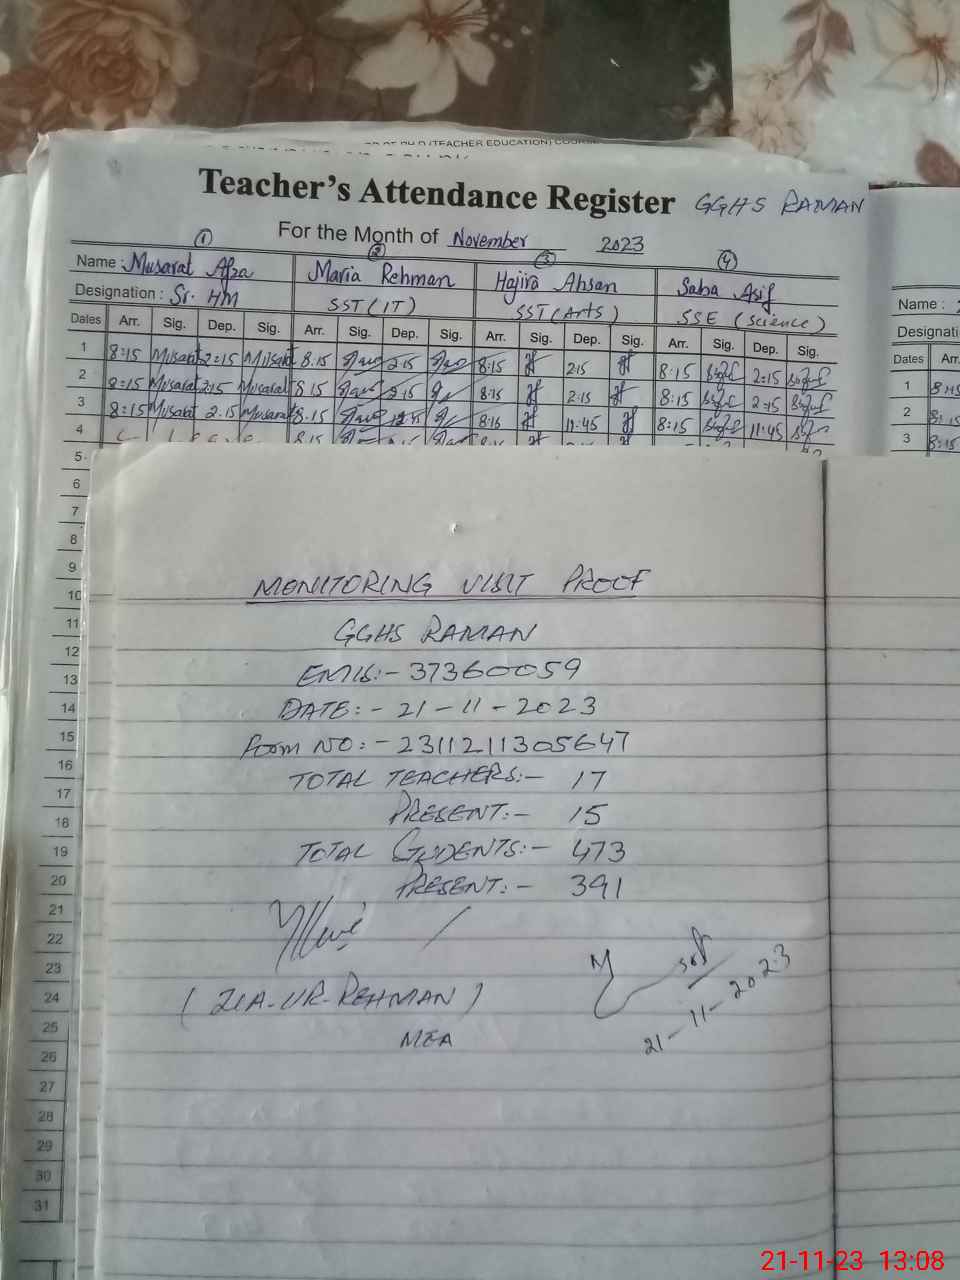 (TEACHER EDUCATION)
Teacher's Attendance Register GGHS RAMAN
For the Month of November 2023
1 2 3 4
Name: Musarat Afza Maria Rehman Hajira Ahsan Saba Asif
Designation: Sr. HM SST (IT) SST (Arts) SSE (Science)
Dates Arr. Sig. Dep. Sig. Arr. Sig. Dep. Sig. Arr. Sig. Dep. Sig. Arr. Sig. Dep. Sig.
1 8:15 Musarat 2:15 Musarat 8.15 2.15 8:15 2:15 8:15 2:15
2 8:15 Musarat 2:15 Musarat 8.15 2.15 8:15 2:15 8:15 2:15
3 8:15 Musarat 2.15 Musarat 8.15 8:15 11:45 8:15 11:45
4 8.15
5
6
7
8
9
10
11
12
13
14
15
16
17
18
19
20
21
22
23
24
25
26
27
28
29
30
31
Name:
Dates Arr.
1 8:15
2 8:15
3 8:15
MONITORING VISIT PROOF
GGHS RAMAN
EMIS:- 37360059
DATE:- 21-11-2023
Form NO:- 2311211305647
TOTAL TEACHERS:- 17
PRESENT:- 15
TOTAL STUDENTS:- 473
PRESENT:- 391
(ZIA-UR-REHMAN)
MEA
21-11-2023
21-11-23 13:08